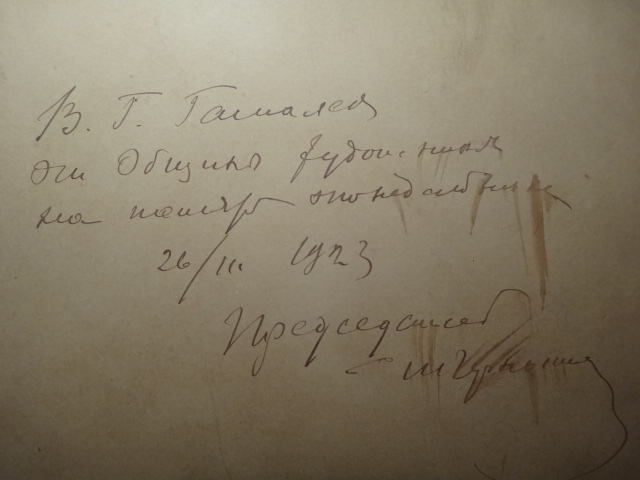 В. Г.
от Общины художников
на память понедельника
26/III 1923
Председатель